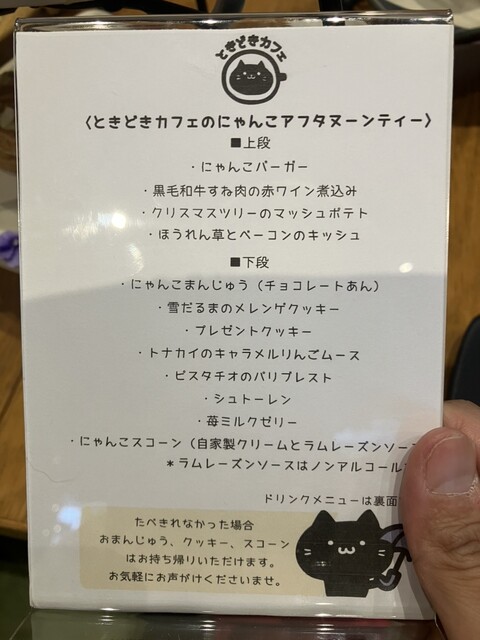 ときどきカフェ
〈ときどきカフェのにゃんこアフタヌーンティー〉
■上段
・にゃんこバーガー
・黒毛和牛すね肉の赤ワイン煮込み
・クリスマスツリーのマッシュポテト
・ほうれん草とベーコンのキッシュ
■下段
・にゃんこまんじゅう（チョコレートあん）
・雪だるまのメレンゲクッキー
・プレゼントクッキー
・トナカイのキャラメルりんごムース
・ピスタチオのパリブレスト
・シュトーレン
・苺ミルクゼリー
・にゃんこスコーン（自家製クリームとラムレーズンソース
＊ラムレーズンソースはノンアルコール
ドリンクメニューは裏面
たべきれなかった場合
おまんじゅう、クッキー、スコーン
はお持ち帰りいただけます。
お気軽にお声がけくださいませ。